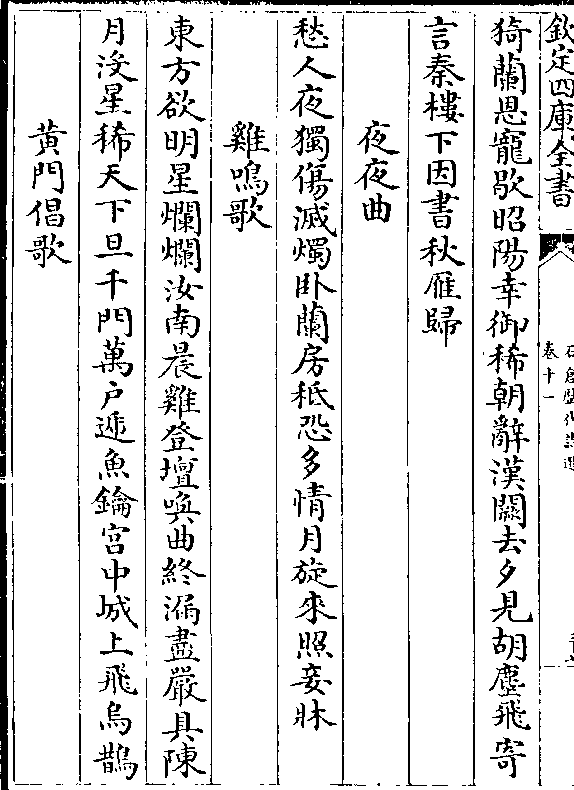 欽定四庫全書
卷十一
猗蘭恩寵歇昭陽幸御稀朝辭漢闕去夕見胡塵飛寄
言秦樓下因書秋雁歸
夜夜曲
愁人夜獨傷滅燭卧蘭房秪恐多情月旋來照妾牀
雞鳴歌
東方欲明星爛爛汝南晨雞登壇喚曲終漏盡嚴具陳
月沒星稀天下旦千門萬户遞魚鑰宫中城上飛烏鵲
黄門倡歌